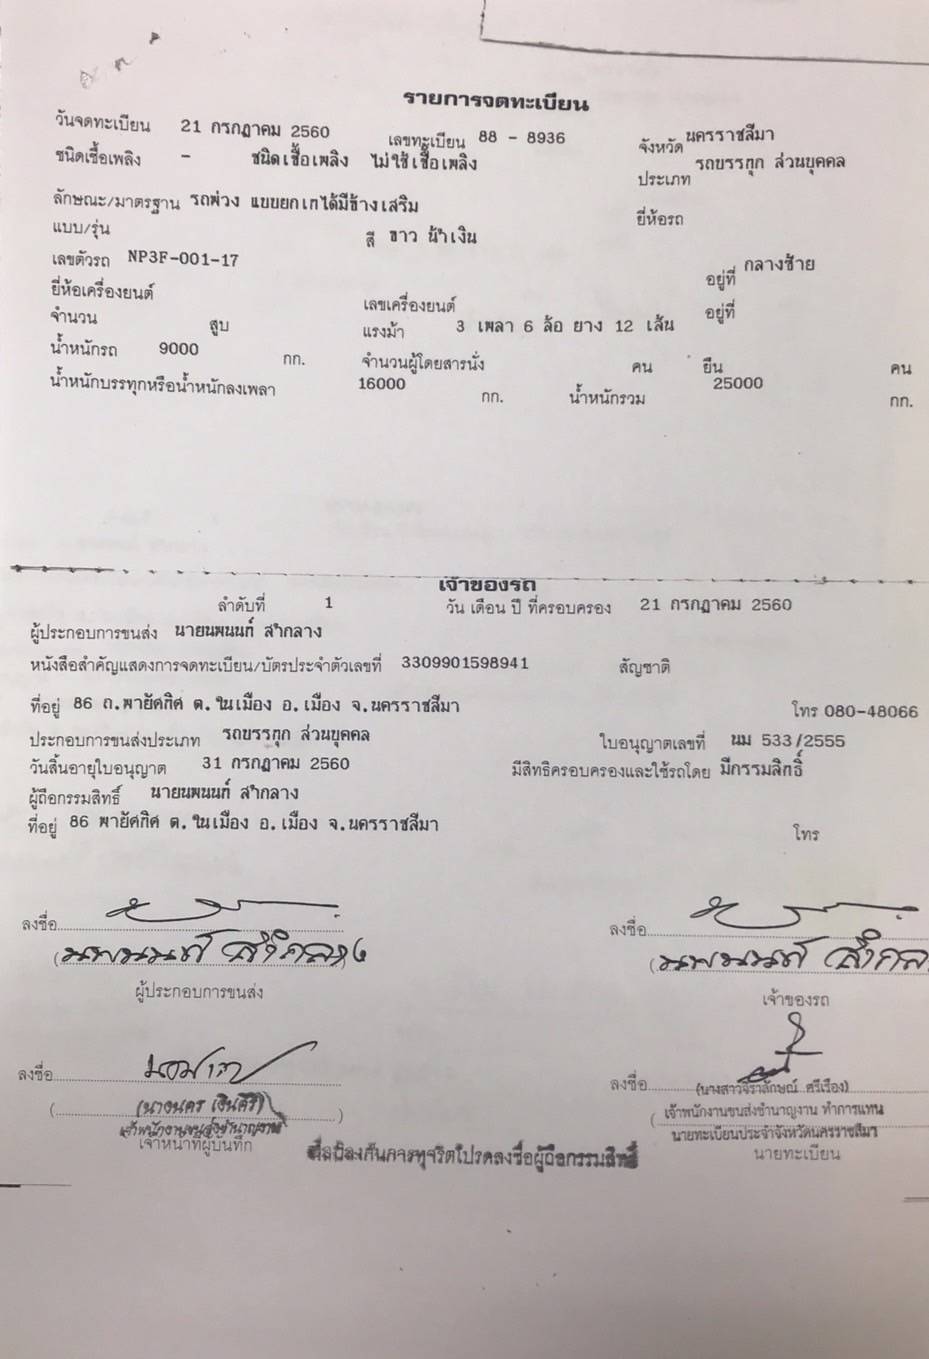 รายการจดทะเบียน
วันจดทะเบียน 21 กรกฎาคม 2560 เลขทะเบียน 88 - 8936 จังหวัด นครราชสีมา
ชนิดเชื้อเพลิง - ชนิดเชื้อเพลิง ไม่ใช้เชื้อเพลิง ประเภท รถบรรทุก ส่วนบุคคล
ลักษณะ/มาตรฐาน รถพ่วง แบบยกเทได้มีข้างเสริม ยี่ห้อรถ
แบบ/รุ่น สี ขาว น้ำเงิน
เลขตัวรถ NP3F-001-17 อยู่ที่ กลางซ้าย
ยี่ห้อเครื่องยนต์ เลขเครื่องยนต์ อยู่ที่
จำนวน สูบ แรงม้า 3 เพลา 6 ล้อ ยาง 12 เส้น
น้ำหนักรถ 9000 กก. จำนวนผู้โดยสารนั่ง คน ยืน คน
น้ำหนักบรรทุกหรือน้ำหนักลงเพลา 16000 กก. น้ำหนักรวม 25000 กก.
เจ้าของรถ
ลำดับที่ 1 วัน เดือน ปี ที่ครอบครอง 21 กรกฎาคม 2560
ผู้ประกอบการขนส่ง นายนพนนท์ สำกลาง
หนังสือสำคัญแสดงการจดทะเบียน/บัตรประจำตัวเลขที่ 3309901598941 สัญชาติ
ที่อยู่ 86 ถ.พายัคทิศ ต.ในเมือง อ.เมือง จ.นครราชสีมา โทร 080-48066
ประกอบการขนส่งประเภท รถบรรทุก ส่วนบุคคล ใบอนุญาตเลขที่ นม 533/2555
วันสิ้นอายุใบอนุญาต 31 กรกฎาคม 2560 มีสิทธิครอบครองและใช้รถโดย มีกรรมสิทธิ์
ผู้ถือกรรมสิทธิ์ นายนพนนท์ สำกลาง
ที่อยู่ 86 พายัคทิศ ต.ในเมือง อ.เมือง จ.นครราชสีมา โทร
ลงชื่อ ลงชื่อ
(นพนนท์ สำกลาง) (นพนนท์ สำกล
ผู้ประกอบการขนส่ง เจ้าของรถ
ลงชื่อ ลงชื่อ
(นางนคร เงินคีรี) (นางสาวจิราลักษณ์ ศรีเรือง)
เจ้าพนักงานขนส่งชำนาญงาน เจ้าพนักงานขนส่งชำนาญงาน ทำการแทน
เจ้าหน้าที่ผู้บันทึก นายทะเบียนประจำจังหวัดนครราชสีมา
นายทะเบียน
เพื่อป้องกันการทุจริตโปรดลงชื่อผู้ถือกรรมสิทธิ์